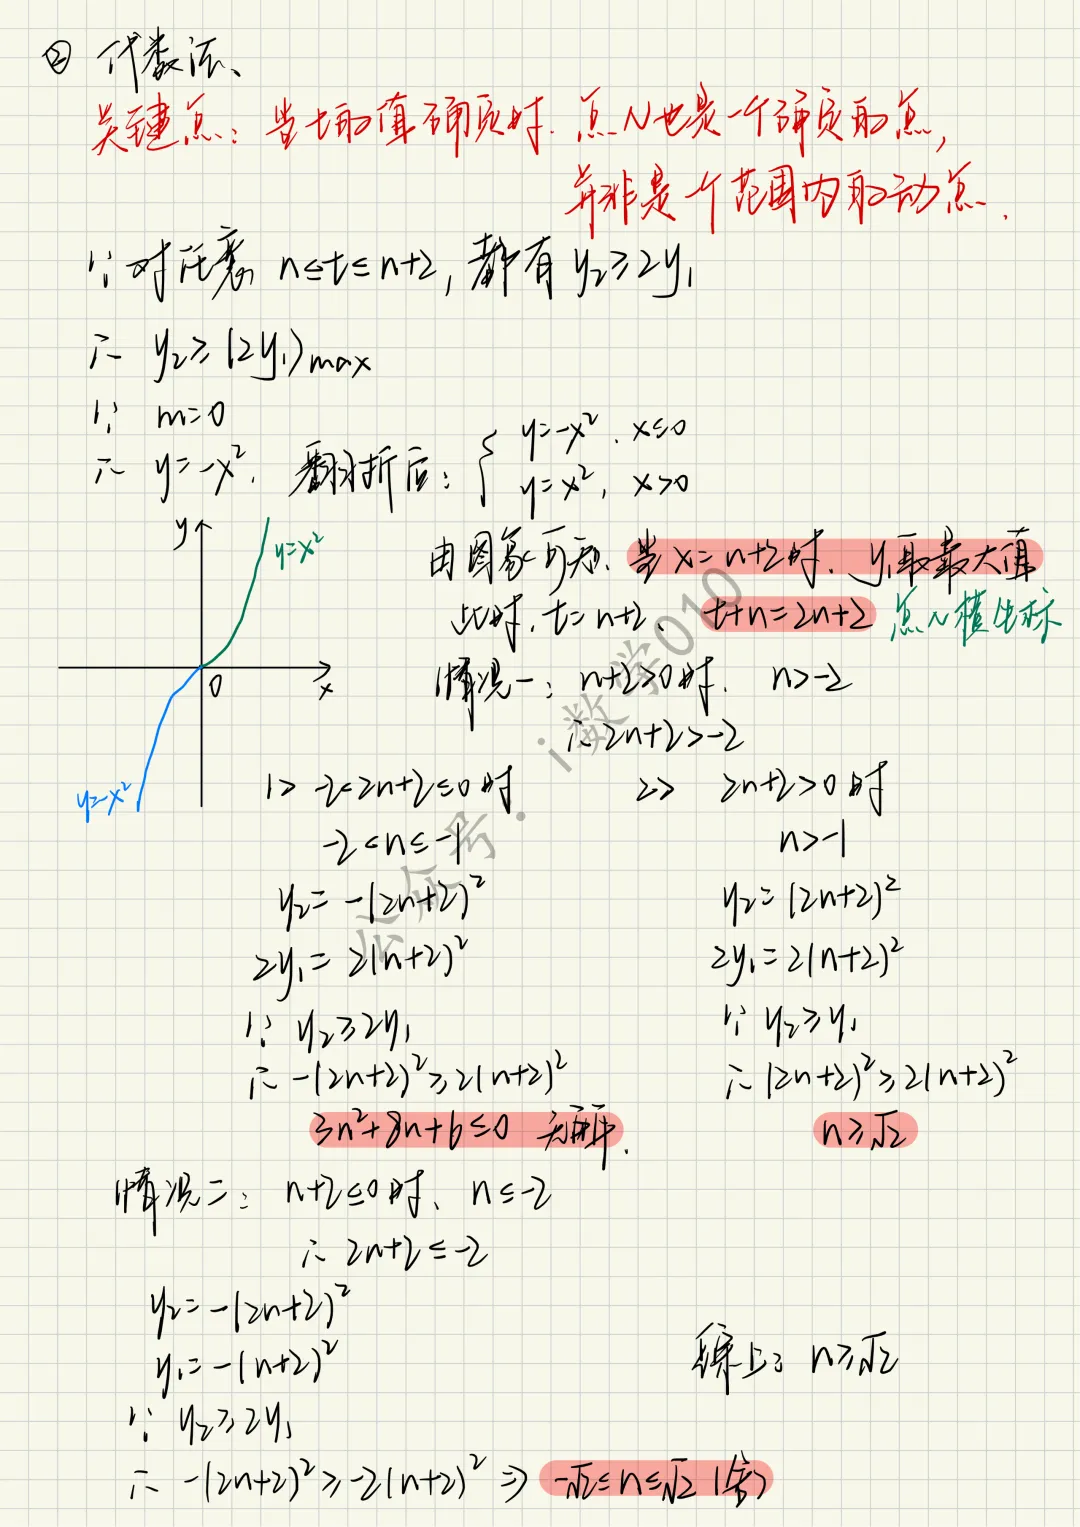 ② 代数法、
关键点：当t取值确定时．点N也是一个确定的点，
并非是一个范围内的动点．
∵对任意 n≤t≤n+2，都有 y₂≥2y₁
∴ y₂≥(2y₁)max
∵ m=0
∴ y=-x²．翻折后：{ y=-x²．x≤0
y=x²，x>0
y
y=x²
0
x
y=-x²
由图象可知、当x=n+2时．y₁取最大值
此时．t=n+2、 t+n=2n+2 点N横坐标
情况一：n+2>0时． n>-2
∴ 2n+2>-2
1> -2<2n+2≤0时
-2<n≤-1
y₂=-(2n+2)²
2y₁=2(n+2)²
∵ y₂≥2y₁
∴ -(2n+2)²≥2(n+2)²
3n²+8n+6≤0 无解．
2> 2n+2>0时
n>-1
y₂=(2n+2)²
2y₁=2(n+2)²
∵ y₂≥y₁
∴ (2n+2)²≥2(n+2)²
n≥√2
情况二：n+2≤0时、n≤-2
∴ 2n+2≤-2
y₂=-(2n+2)²
y₁=-(n+2)²
∵ y₂≥2y₁
∴ -(2n+2)²≥-2(n+2)² ⇒ -√2≤n≤√2 (舍)
综上：n≥√2
公众号·i数学010